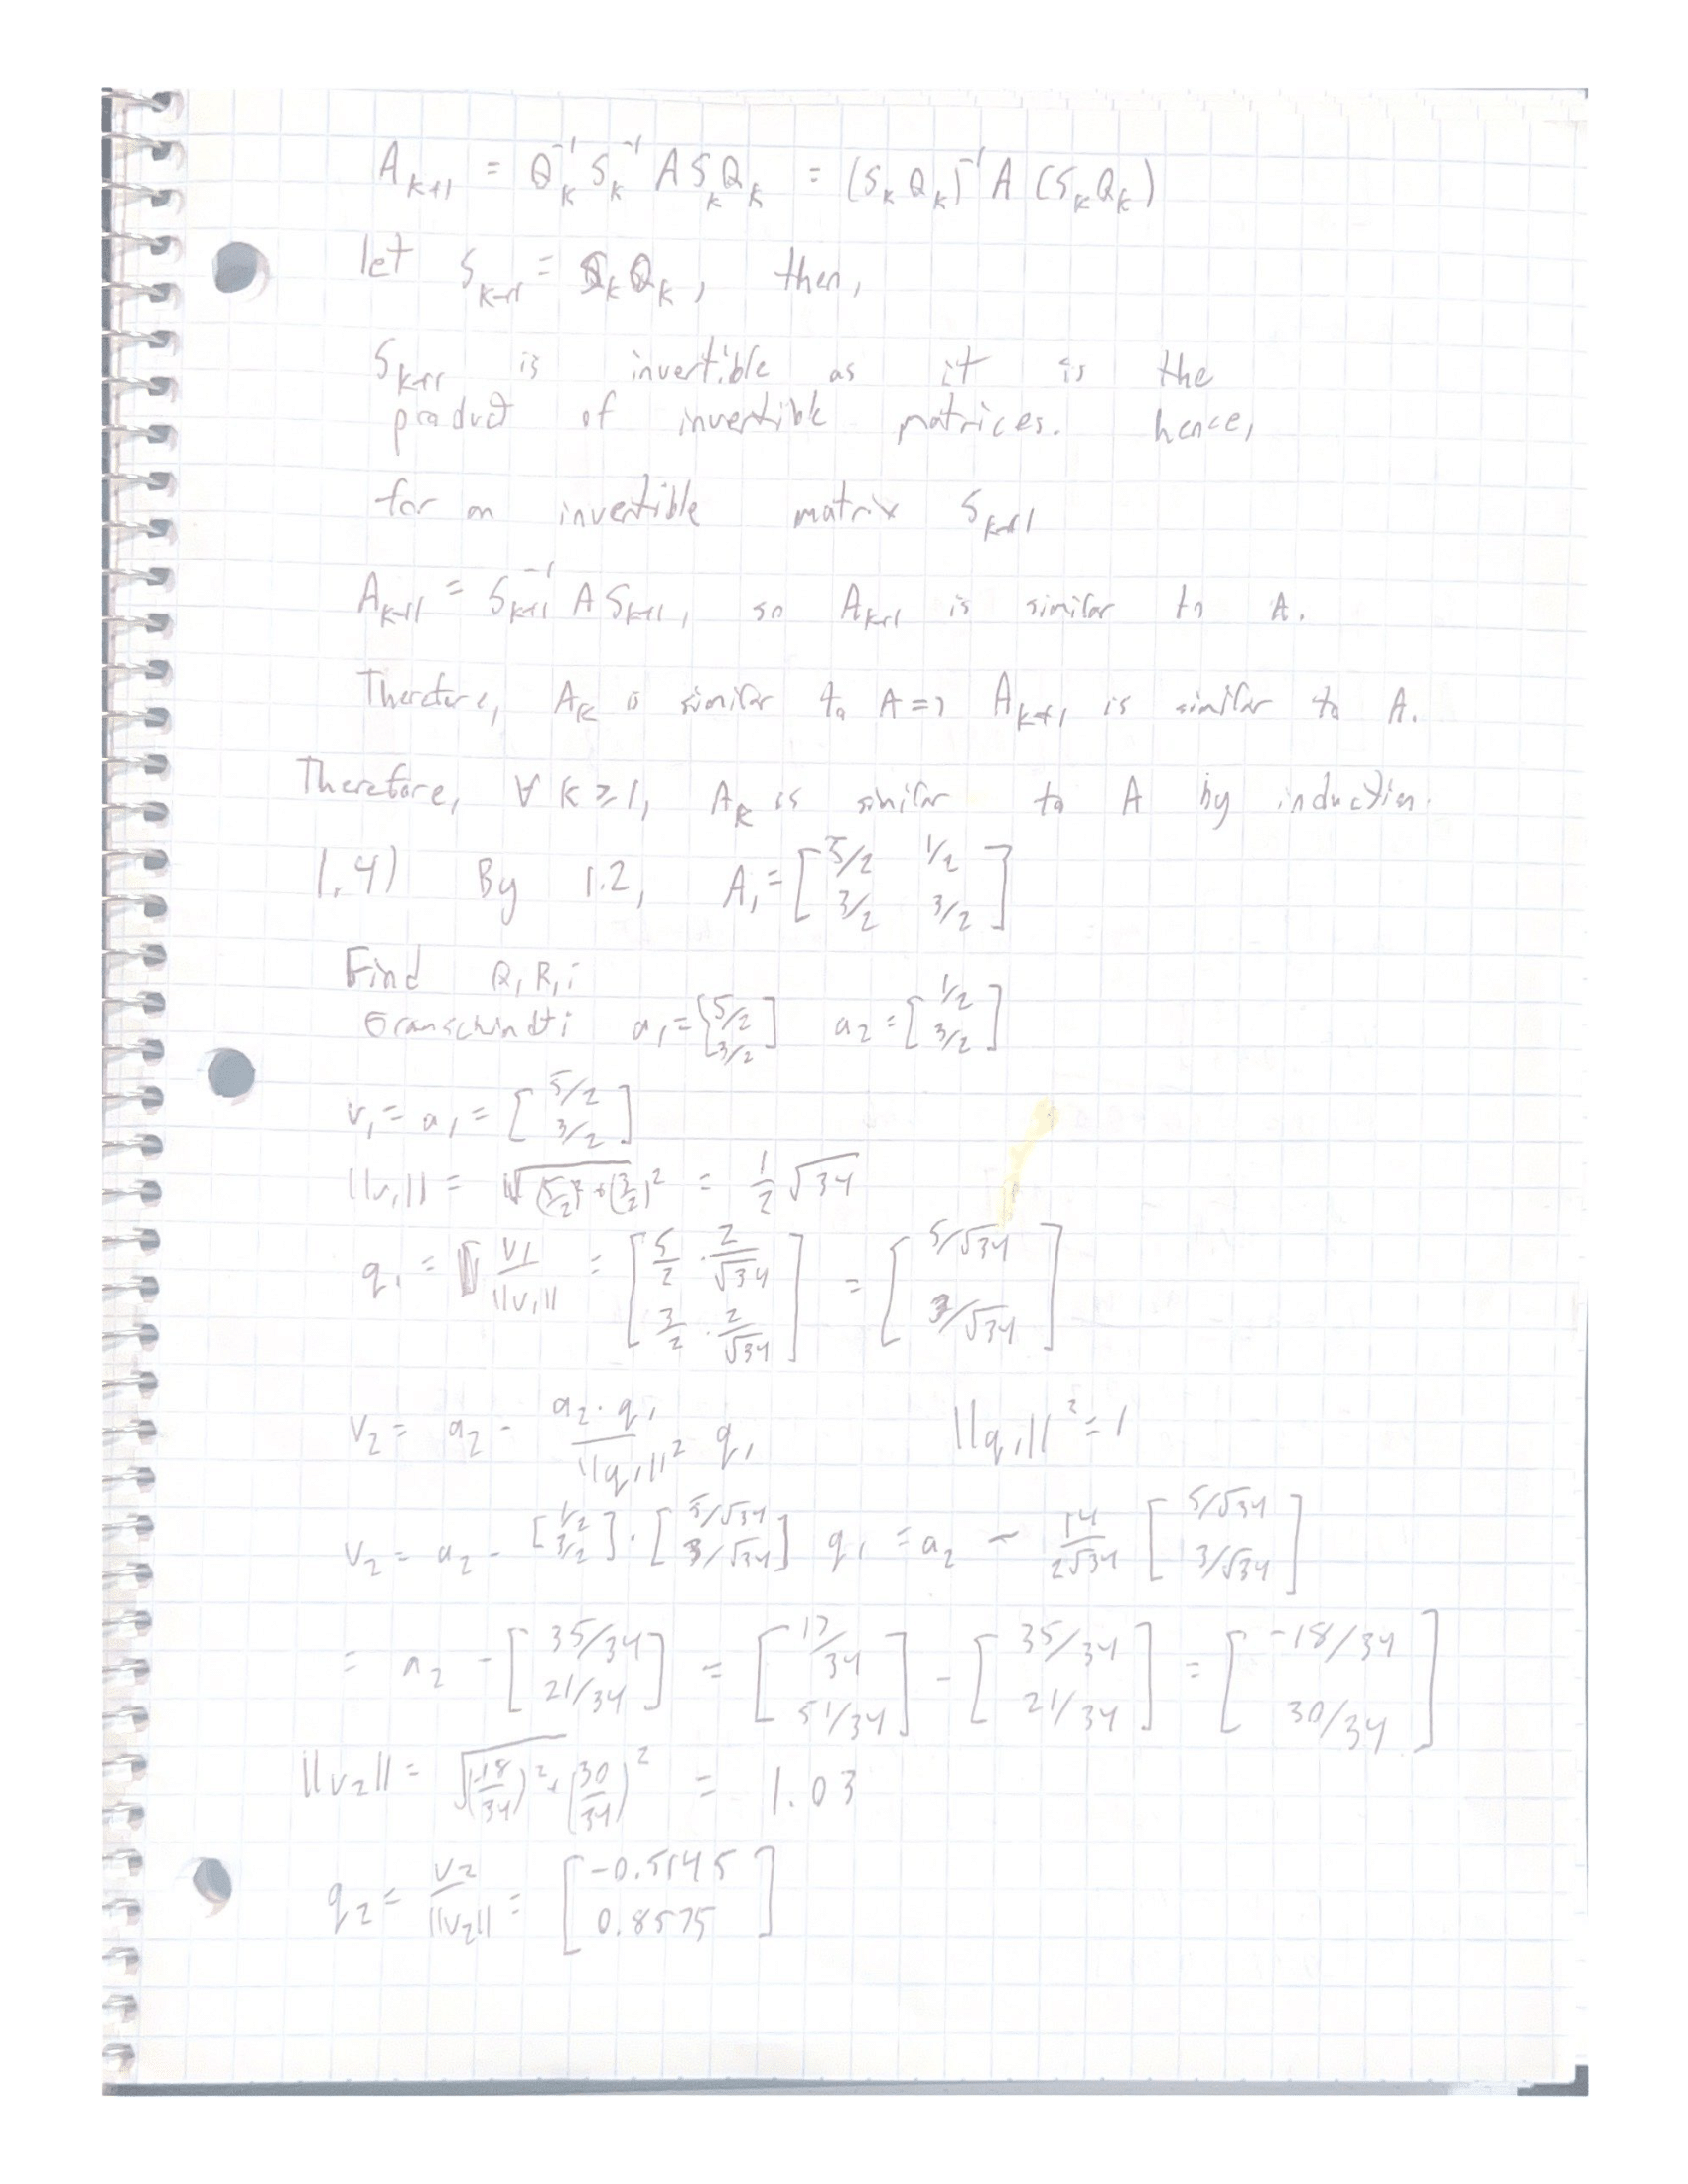 A_{k+1} = Q_k^{-1} S_k^{-1} A S_k Q_k = (S_k Q_k)^{-1} A (S_k Q_k)
let S_{k+1} = S_k Q_k, then,
S_{k+1} is invertible as it is the
product of invertible matrices. hence,
for an invertible matrix S_{k+1}
A_{k+1} = S_{k+1}^{-1} A S_{k+1}, so A_{k+1} is similar to A.
Therefore, A_k is similar to A => A_{k+1} is similar to A.
Therefore, ∀ k ≥ 1, A_k is similar to A by induction.
1.4) By 1.2, A_1 = [5/2 1/2; 3/2 3/2]
Find Q_1 R_1:
Gramschmidt: a_1 = [5/2; 3/2] a_2 = [1/2; 3/2]
v_1 = a_1 = [5/2; 3/2]
||v_1|| = √((5/2)^2 + (3/2)^2) = 1/2 √34
q_1 = v_1/||v_1|| = [5/2 · 2/√34; 3/2 · 2/√34] = [5/√34; 3/√34]
v_2 = a_2 - (a_2 · q_1)/||q_1||^2 q_1 ||q_1||^2 = 1
v_2 = a_2 - [1/2; 3/2] · [5/√34; 3/√34] q_1 = a_2 - 14/(2√34) [5/√34; 3/√34]
= a_2 - [35/34; 21/34] = [17/34; 51/34] - [35/34; 21/34] = [-18/34; 30/34]
||v_2|| = √((-18/34)^2 + (30/34)^2) = 1.03
q_2 = v_2/||v_2|| = [-0.5145; 0.8575]